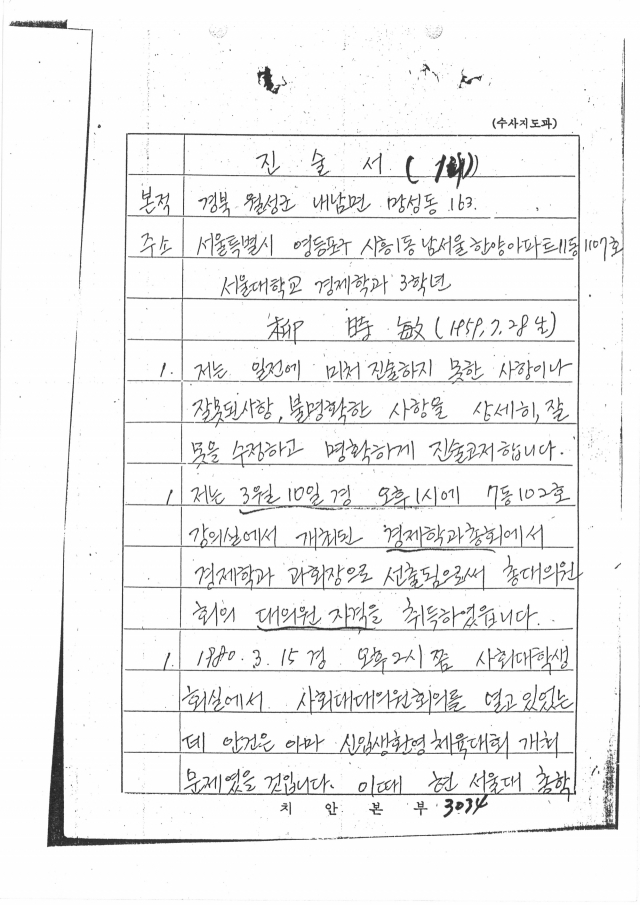 (수사지도과)
진 술 서
본적 경북 월성군 내남면 망성동 163.
주소 서울특별시 영등포구 시흥1동 남서울한양아파트11동1107호
서울대학교 경제학과 3학년
柳 時 敏 (1959. 7. 28 生)
1. 저는 일전에 미처 진술하지 못한 사항이나
잘못된사항, 불명확한 사항을 상세히, 잘
못을 수정하고 명확하게 진술코저합니다.
1 저는 3월 10일 경 오후1시에 7동102호
강의실에서 개최된 경제학과총회에서
경제학과 과회장으로 선출됨으로써 총대의원
회의 대의원 자격을 취득하였읍니다.
1. 1980. 3. 15 경 오후2시 쯤 사회대학생
회실에서 사회대대의원회의를 열고있었는
데 안건은 아마 신입생환영체육대회 개최
문제였을 것입니다. 이때 현 서울대 총학
치 안 본 부 3034